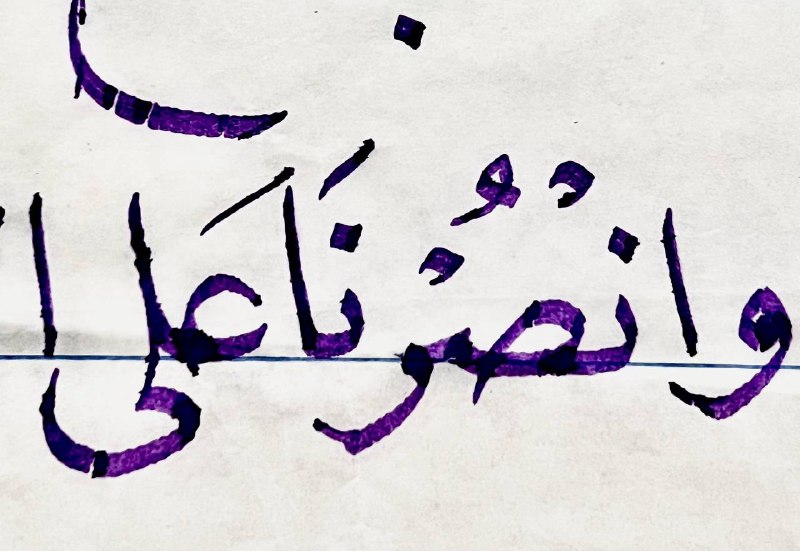 وانْصُرْنَا عَلى ا